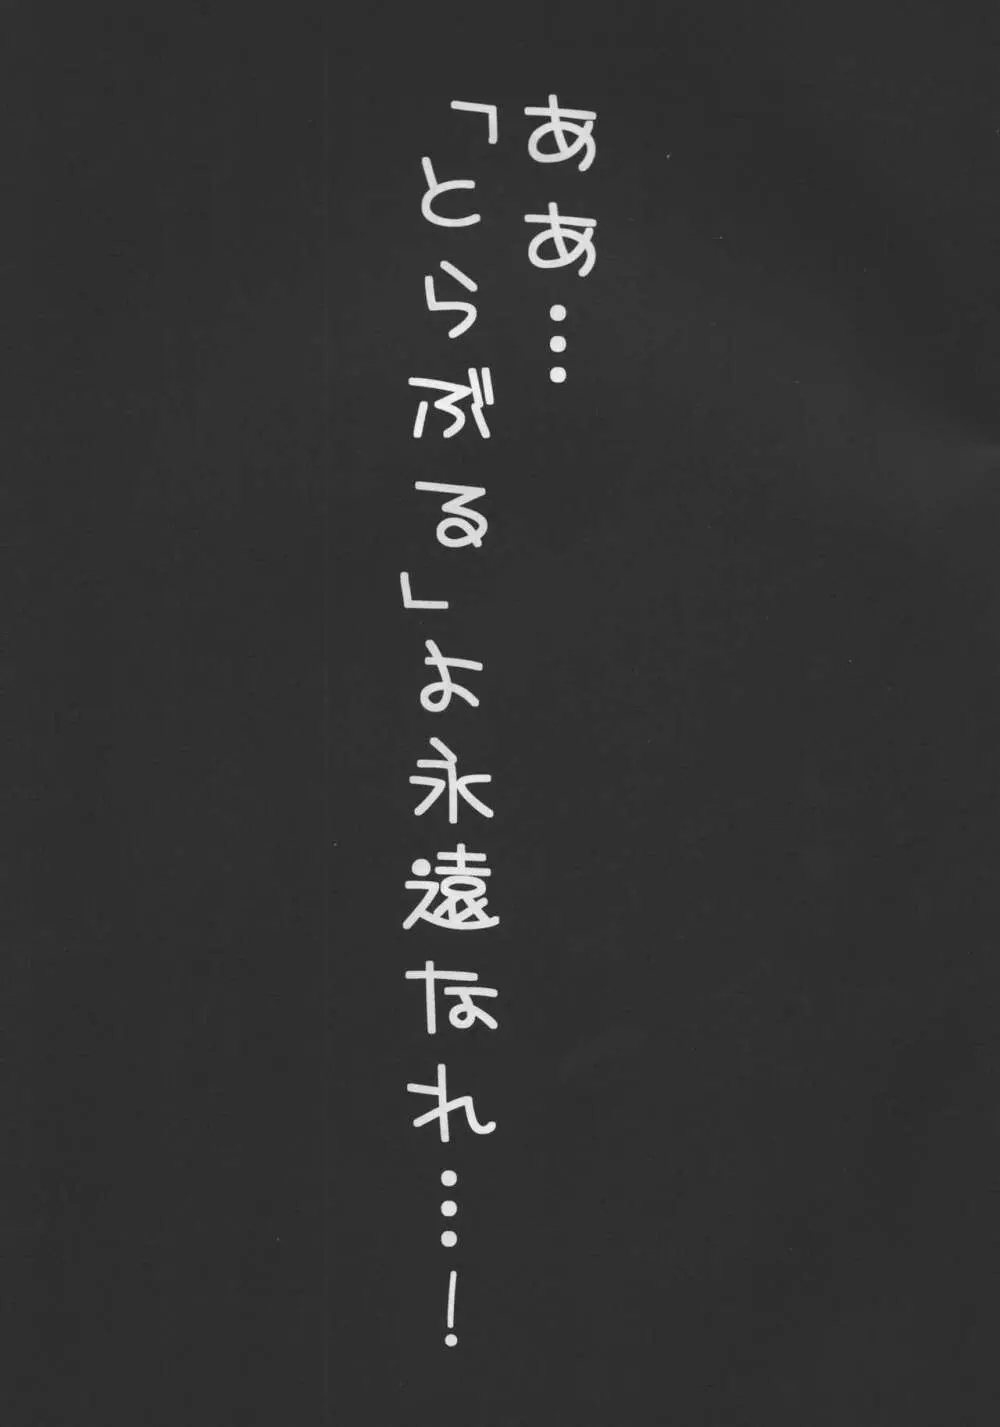 ああ…
「とらぶる」よ永遠なれ…！